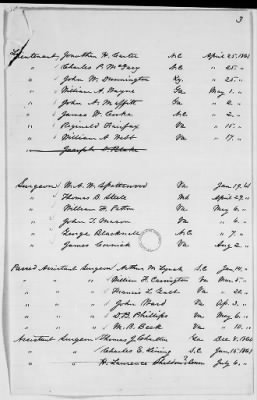 3
Lieutenant Jonathan H. Carter N.C April 25, 1861
" Charles P. McGary N.C " 25, "
" John W. Dunnington Ky. " 25, "
" William A. Wayne Ga May 1, "
" John N. Maffitt Ga " 2, "
" James W. Cooke N.C " 2, "
" Reginald Fairfax Va " 15, "
" William A. Webb Va " 17, "
" Joseph D. Blake
Surgeon W. A. W. Spotswood Va Jan 19, 61
" Thomas B. Steele Md April 29, "
" William F. Patton Va May 6, "
" John T. Mason Va " 6, "
" George Blacknall N.C " 7, "
" James Cornick Va Aug 2, "
Passed Assistant Surgeon Arthur M. Lynah S.C Jan 14, "
" " William F. Carrington Va Mar 5, "
" " Francis L. Galt Va " 21, "
" " John Ward Va Ap. 3, "
" " D. B. Phillips Va May 6, "
" " M. P. Beck Va " 10, "
Assistant Surgeon Thomas J. Charlton Geo Dec 8, 1860
" " Charles E. Lining S.C Jan 15, 1861
" " H. Lawrence Sheldon July 6, "